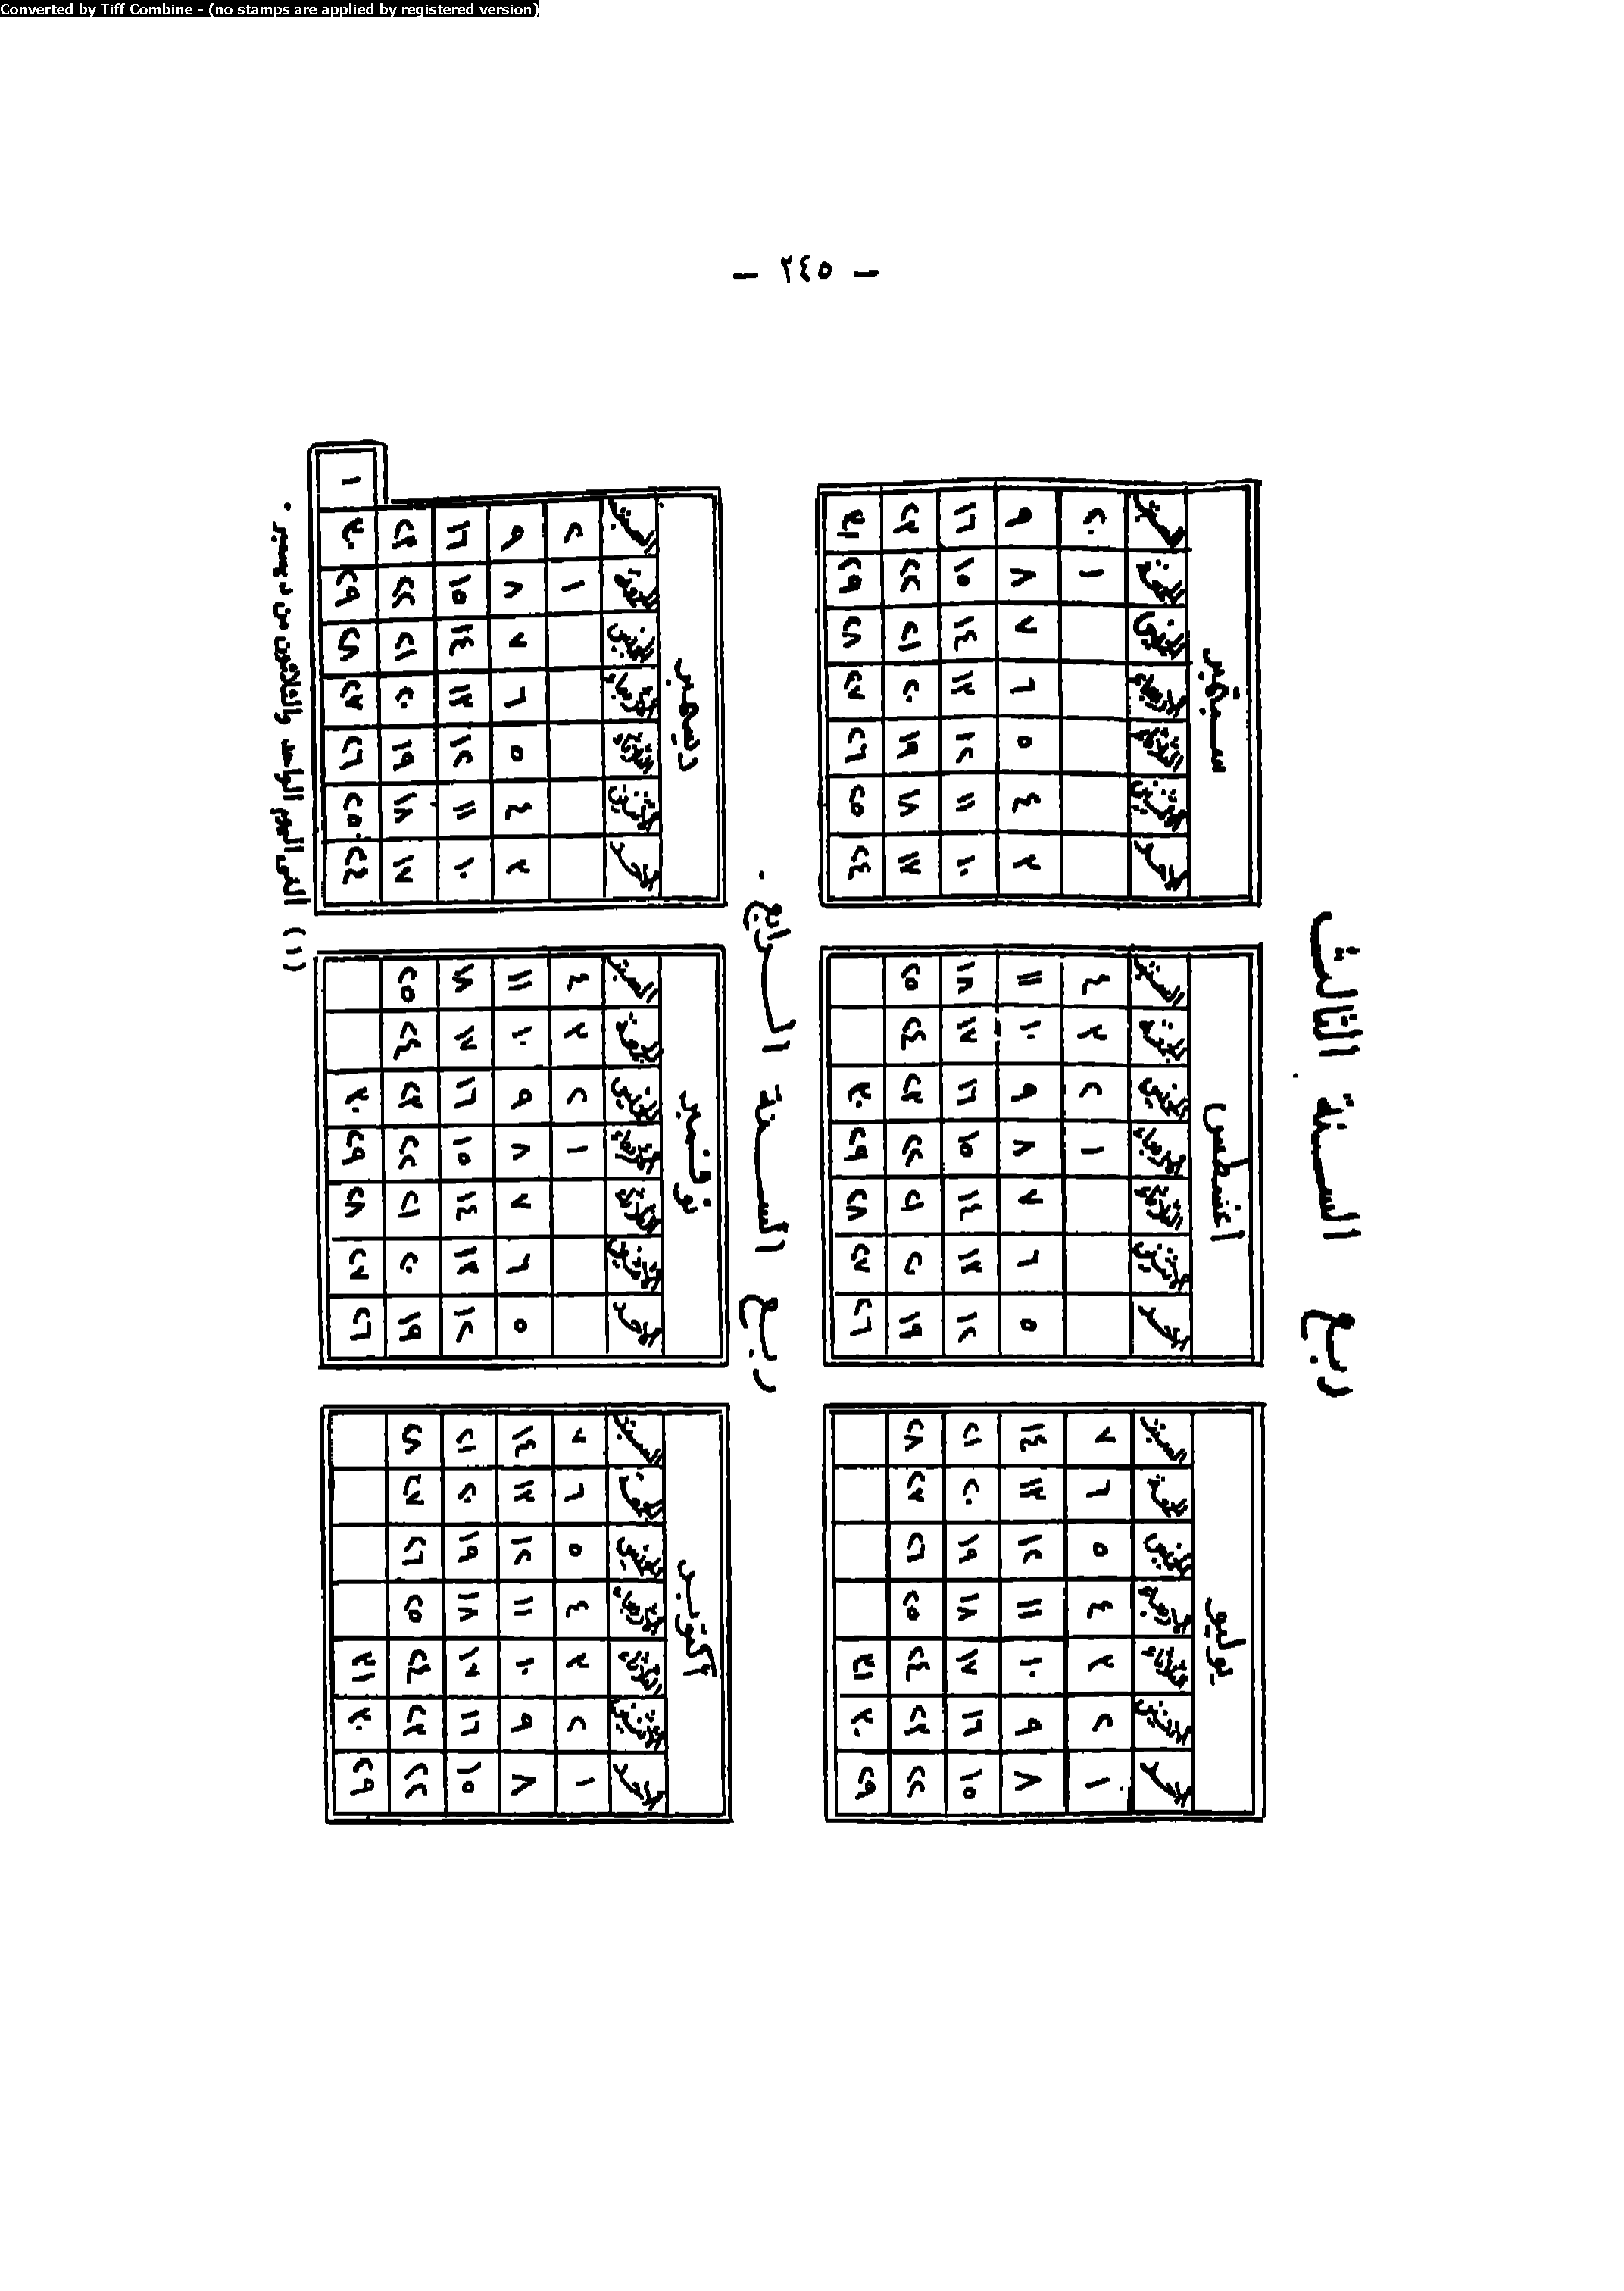 Converted by Tiff Combine - (no stamps are applied by registered version)
— ٢٤٥ —
ربع السنة الثالث
يوليو
الأحد الاثنين الثلاثاء الأربعاء الخميس الجمعة السبت
١ ٢ ٣ ٤ ٥ ٦ ٧
٨ ٩ ١٠ ١١ ١٢ ١٣ ١٤
١٥ ١٦ ١٧ ١٨ ١٩ ٢٠ ٢١
٢٢ ٢٣ ٢٤ ٢٥ ٢٦ ٢٧ ٢٨
٢٩ ٣٠ ٣١
اغسطس
الأحد الاثنين الثلاثاء الأربعاء الخميس الجمعة السبت
١ ٢ ٣ ٤
٥ ٦ ٧ ٨ ٩ ١٠ ١١
١٢ ١٣ ١٤ ١٥ ١٦ ١٧ ١٨
١٩ ٢٠ ٢١ ٢٢ ٢٣ ٢٤ ٢٥
٢٦ ٢٧ ٢٨ ٢٩ ٣٠
سبتمبر
الأحد الاثنين الثلاثاء الأربعاء الخميس الجمعة السبت
١ ٢
٣ ٤ ٥ ٦ ٧ ٨ ٩
١٠ ١١ ١٢ ١٣ ١٤ ١٥ ١٦
١٧ ١٨ ١٩ ٢٠ ٢١ ٢٢ ٢٣
٢٤ ٢٥ ٢٦ ٢٧ ٢٨ ٢٩ ٣١
ربع السنة الرابع .
أكتوبر
الأحد الاثنين الثلاثاء الأربعاء الخميس الجمعة السبت
١ ٢ ٣ ٤ ٥ ٦ ٧
٨ ٩ ١٠ ١١ ١٢ ١٣ ١٤
١٥ ١٦ ١٧ ١٨ ١٩ ٢٠ ٢١
٢٢ ٢٣ ٢٤ ٢٥ ٢٦ ٢٧ ٢٨
٢٩ ٣٠ ٣١
نوفمبر
الأحد الاثنين الثلاثاء الأربعاء الخميس الجمعة السبت
١ ٢ ٣ ٤
٥ ٦ ٧ ٨ ٩ ١٠ ١١
١٢ ١٣ ١٤ ١٥ ١٦ ١٧ ١٨
١٩ ٢٠ ٢١ ٢٢ ٢٣ ٢٤ ٢٥
٢٦ ٢٧ ٢٨ ٢٩ ٣٠
ديسمبر
الأحد الاثنين الثلاثاء الأربعاء الخميس الجمعة السبت
١ ٢
٣ ٤ ٥ ٦ ٧ ٨ ٩
١٠ ١١ ١٢ ١٣ ١٤ ١٥ ١٦
١٧ ١٨ ١٩ ٢٠ ٢١ ٢٢ ٢٣
٢٤ ٢٥ ٢٦ ٢٧ ٢٨ ٢٩ ٣٠ ١
(١) الغى اليوم الواحد والثلاثون من ديسمبر .